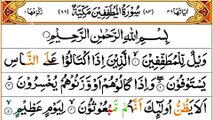 سُوْرَةُ الْمُطَفِّفِيْنَ مَكِّيَّةٌ
بِسْمِ اللّٰهِ الرَّحْمٰنِ الرَّحِيْمِ
وَيْلٌ لِّلْمُطَفِّفِيْنَ الَّذِيْنَ اِذَا اكْتَالُوْا عَلَى النَّاسِ
يَسْتَوْفُوْنَ وَاِذَا كَالُوْهُمْ اَوْ وَّزَنُوْهُمْ يُخْسِرُوْنَ
اَلَا يَظُنُّ اُولٰٓئِكَ اَنَّهُمْ مَّبْعُوْثُوْنَ لِيَوْمٍ عَظِيْمٍ